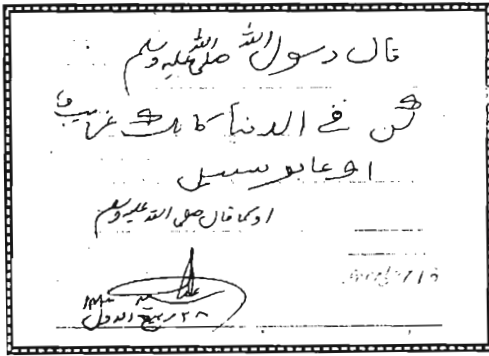 قال رسول الله صلى الله عليه وسلم
كن في الدنيا كانك غريب
او عابر سبيل
او كما قال صلى الله عليه وسلم
٢٨ ربيع الاول